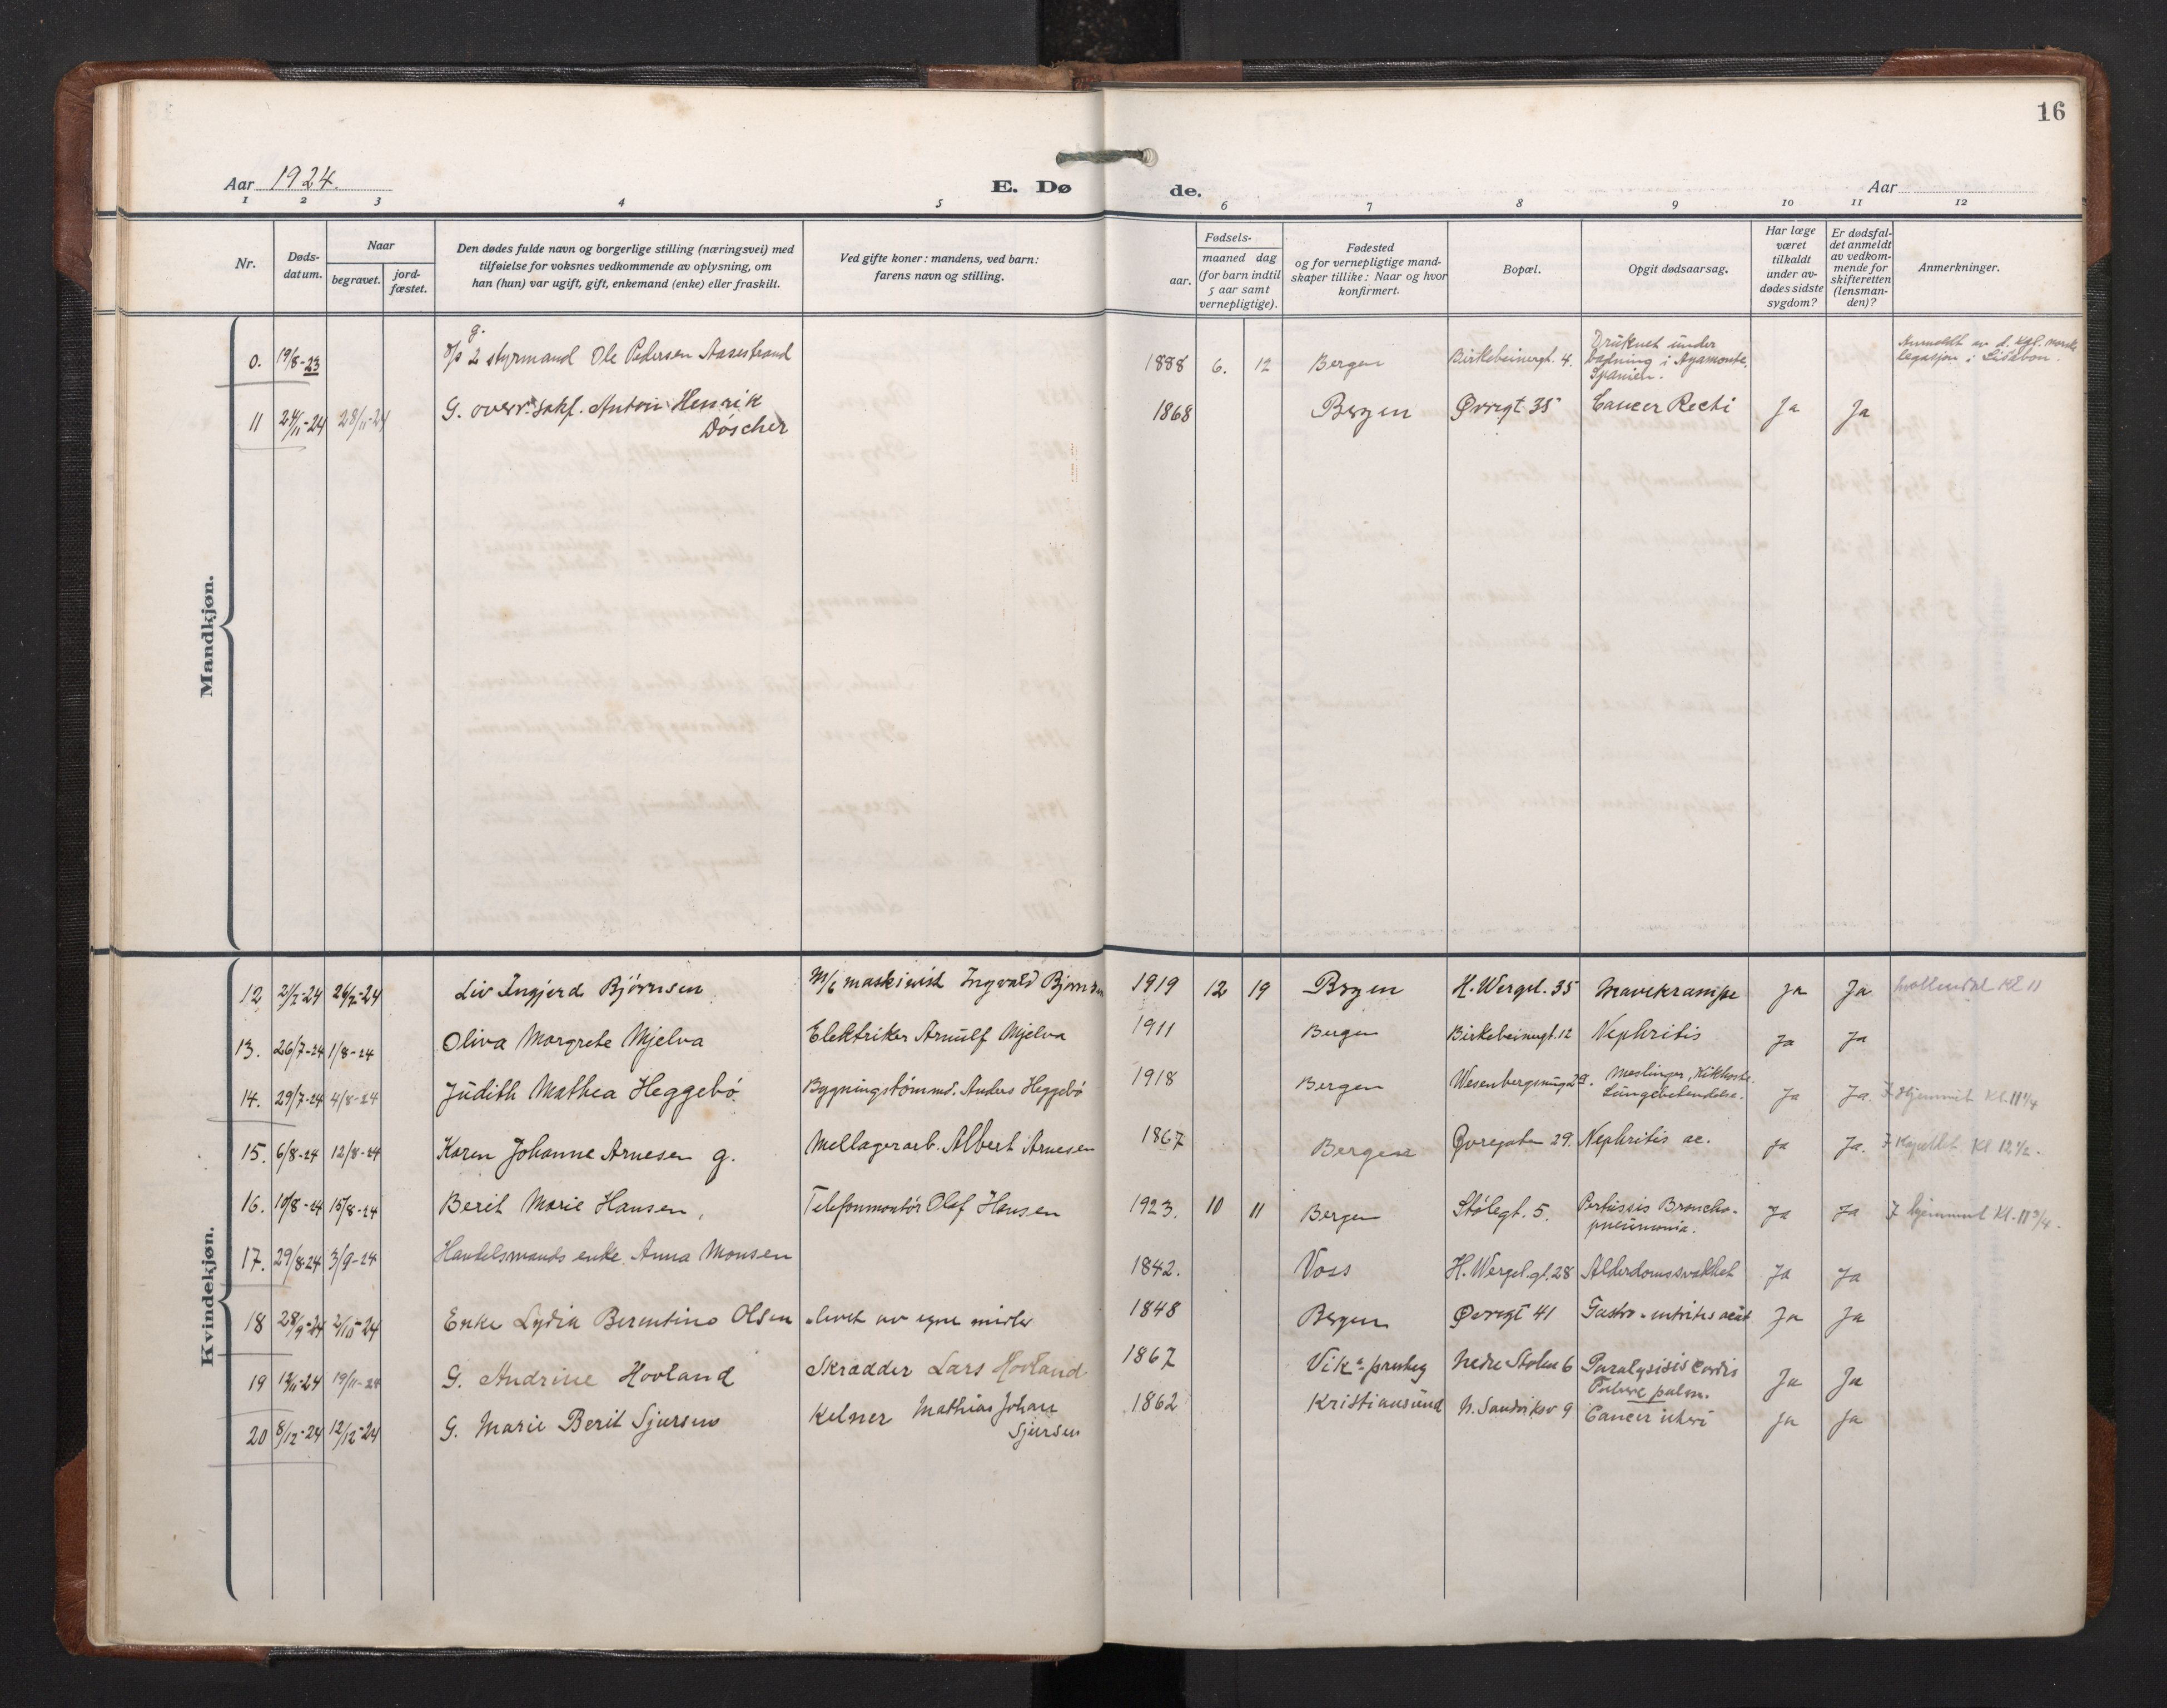 16
Aar 1924.
E. Døde.
Aar
1 2 3 4 5 6 7 8 9 10 11 12
Nr.
Døds-
datum.
Naar
begravet.
jord-
fæstet.
Den dødes fulde navn og borgerlige stilling (næringsvei) med
tilføielse for voksnes vedkommende av oplysning, om
han (hun) var ugift, gift, enkemand (enke) eller fraskilt.
Ved gifte koner: mandens, ved barn:
farens navn og stilling.
Fødsels-
aar.
maaned dag
(for barn indtil
5 aar samt
vernepligtige).
Fødested
og for vernepligtige mand-
skaper tillike: Naar og hvor
konfirmert.
Bopæl.
Opgit dødsaarsag.
Har læge
været
tilkaldt
under av-
dødes sidste
sygdom?
Er dødsfal-
det anmeldt
av vedkom-
mende for
skifteretten
(lensman-
den)?
Anmerkninger.
Mandkjøn.
g.
0. 19/8-23 2 styrmand Ole Pedersen Aasestrand 1888 6. 12 Bergen Birkebeinergt. 4. Druknet under
badning i Ayamonte.
Spanien.
Anmeldt av d. kgl. norske
legasjon i Lisabon.
11 24/11-24 28/11-24 G. overr.sakf. Anton Henrik
Döscher 1868 Bergen Øvregt 35 Cancer Recti Ja Ja
Kvindekjøn.
12 21/7-24 26/7-24 Liv Ingjerd Björnsen M/c maskinist Ingvald Bjørnsen 1919 12 19 Bergen H. Wergel. 35 Mavekrampe Ja Ja Møllendal Kl 11
13. 26/7-24 1/8-24 Oliva Margrete Mjelva Elektriker Arnulf Mjelva 1911 Bergen Birkebeinergt. 12 Nephritis Ja Ja
14. 29/7-24 4/8-24 Judith Mathea Heggebö. Bygningstömmd. Anders Heggebö 1918 Bergen Wesenbergsmug 29. Meslinger, Kikhoste.
Lungebetendelse. Ja Ja. F. Hjemmet Kl. 11 1/4
15. 6/8-24 12/8-24 Karen Johanne Arnesen g. Mellagerarb. Albert Arnesen 1867 Bergen Øvregaten 29. Nephritis ac. Ja Ja. F Kapellet Kl 12 1/2.
16. 10/8-24 15/8-24 Berit Marie Hansen, Telefonmontör Olaf Hansen 1923. 10 11 Bergen Stölegt. 5. Pertussis Broncho-
pneumonia. Ja Ja F hjemmet Kl. 11 3/4.
17. 29/8-24 3/9-24 Handelsmands enke. Anna Monsen 1842. Voss H. Wergel.gt. 28 Alderdomssvakhet Ja Ja
18 28/9-24 2/10-24 Enke Lydia Berentine Olsen levet av egne midler 1848 Bergen Øvregt 41 Gastro-entritis acut Ja Ja
19 12/11-24 19/11-24 G. Andrine Hovland Skrædder Lars Hovland 1867 Viks prestegj Nedre Stölen 6 Paralysisis cordis
Tuberc pulm. Ja Ja
20 8/12-24 12/12-24 G. Marie Berit Sjursen Kelner Mathias Johan
Sjursen 1862 Kristiansund N. Sandviksv 9 Cancer uteri Ja Ja